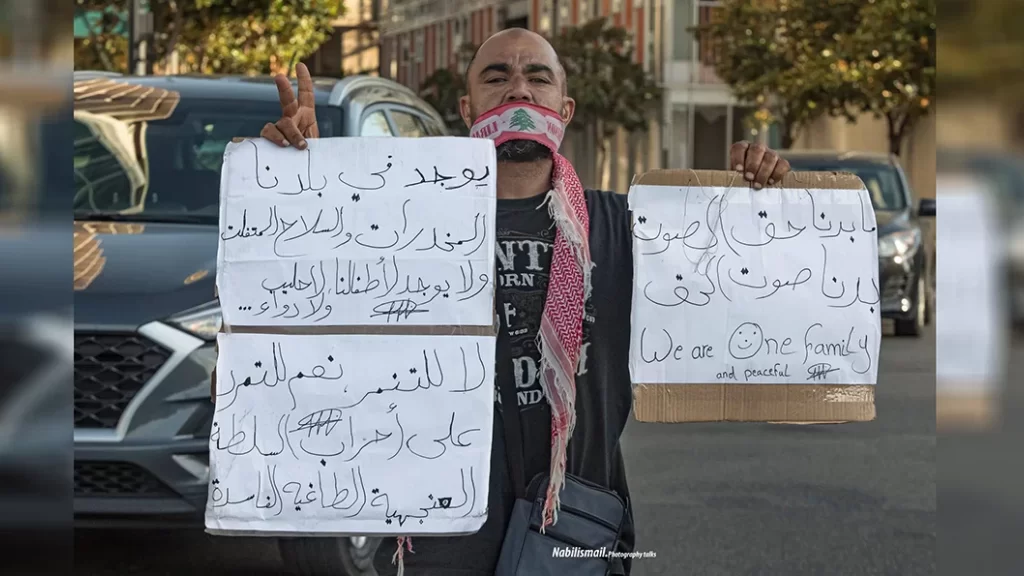 يوجد في بلدنا
المخدرات والسلاح المتفلت
ولا يوجد لأطفلنا لا حليب
ولا دواء...
لا للتنمر، نعم للتمرد
على (أحزاب) السلطة
العنجهية الطاغية الفاسدة
ما بدنا حق) الصوت
بدنا صوت) الحق
We are One family
and peaceful
Nabilismail.Photography talks